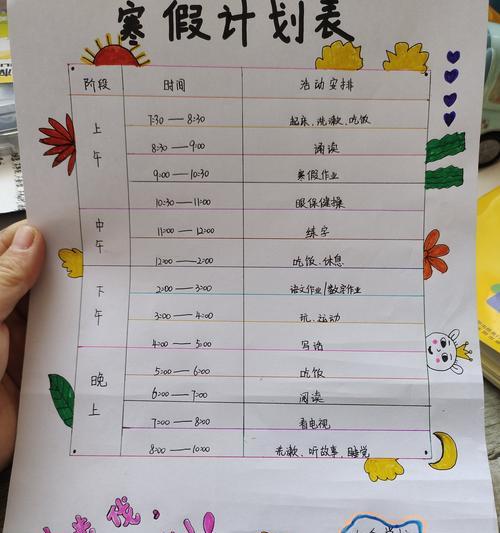 寒假计划表
阶段 时间 活动安排
上午 7:30——8:30 起床、洗漱、吃饭
8:30——9:00 诵读
9:00——10:30 寒假作业
10:30——11:00 眼保健操
中午 11:00——12:00 练字
12:00——2:00 吃饭、休息
下午 2:00——3:00 语文作业/数学作业
3:00——4:00 玩、运动
4:00——5:00 写话
晚上 5:00——6:00 吃饭
6:00——7:00 阅读
7:00——8:00 看电视
8:00——10:00 洗漱、听故事、睡觉